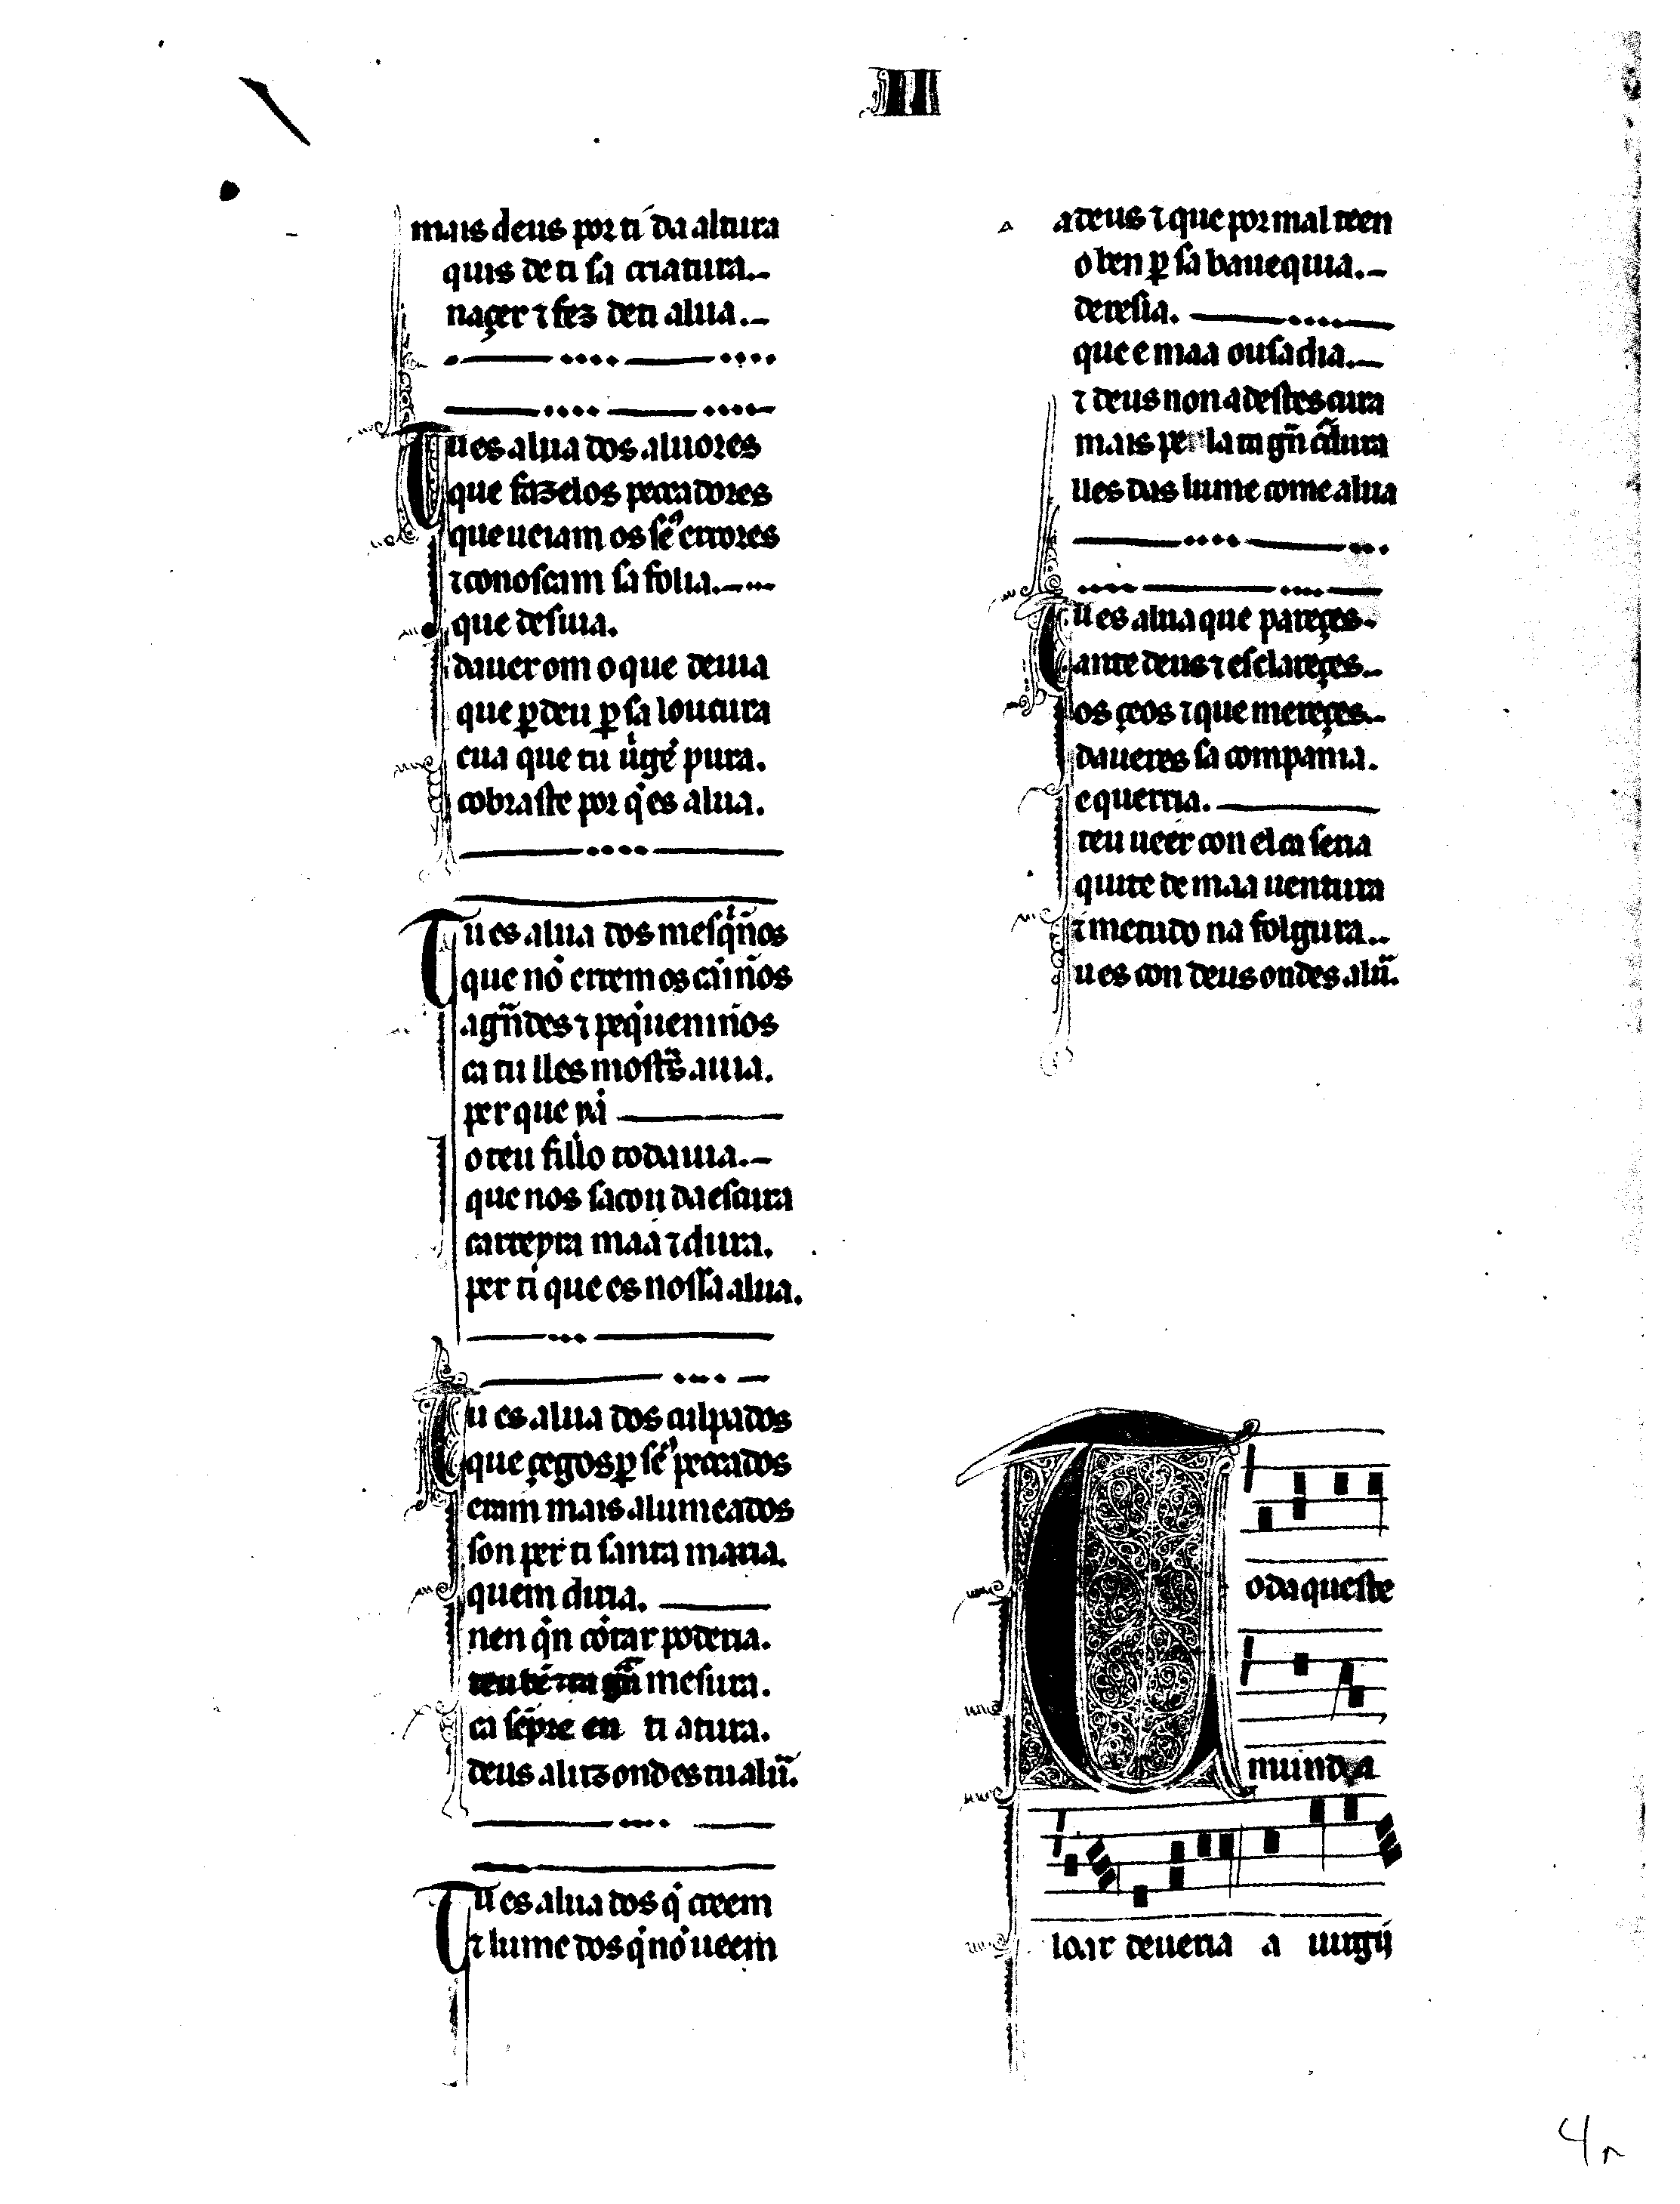 III
mais deus por ti da altura
quis de ti sa criatura.
naçer ⁊ fez de ti alua.
Tu es alua dos aluores
que fazelos peccadores
que ueiam os se᷒ errores
⁊ conoscam sa folia.
que desuia.
dauer om o que deuia
que ꝑdeu ꝑ sa loucura
eua que tu uͥgẽ pura.
cobraste por qͥ es alua.
Tu es alua dos mesqͥn̄os
que nõ errem os camin̄os
a gñdes ⁊ peqͥuenin̄os
ca tu lles mostr̃s a uia.
per que uai
o teu fillo todauia.
que nos sacou da escura
carreyra maa ⁊ dura.
per ti que es nossa alua.
Tu es alua dos culpados
que çegos ꝑ se᷒ peccados
eram mais alumeados
son per ti santa maria.
quem diria.
nen qͥn cõtar poderia.
teu bẽ ⁊ ta gñ mesura.
ca sẽpre en ti atura.
deus a luz ond es tu alũ.
Tu es alua dos qͥ creem
⁊ lume dos qͥ nõ ueem
a deus ⁊ que por mal teen
o ben ꝑ sa bauequia.
deresia.
que e maa ousadia.
⁊ deus non a destes cura
mais pela ta gñ cordura
lles das lume come alua
Tu es alua que pareçes
ante deus ⁊ esclareçes
os çeos ⁊ que mereçes
daueres sa compania.
e querria.
teu ueer con el ca seria
quite de maa uentura
⁊ metudo na folgura
u es con deus ond es alũ.
Tod aqueste
mund a
loar deueria a uirgij
4r